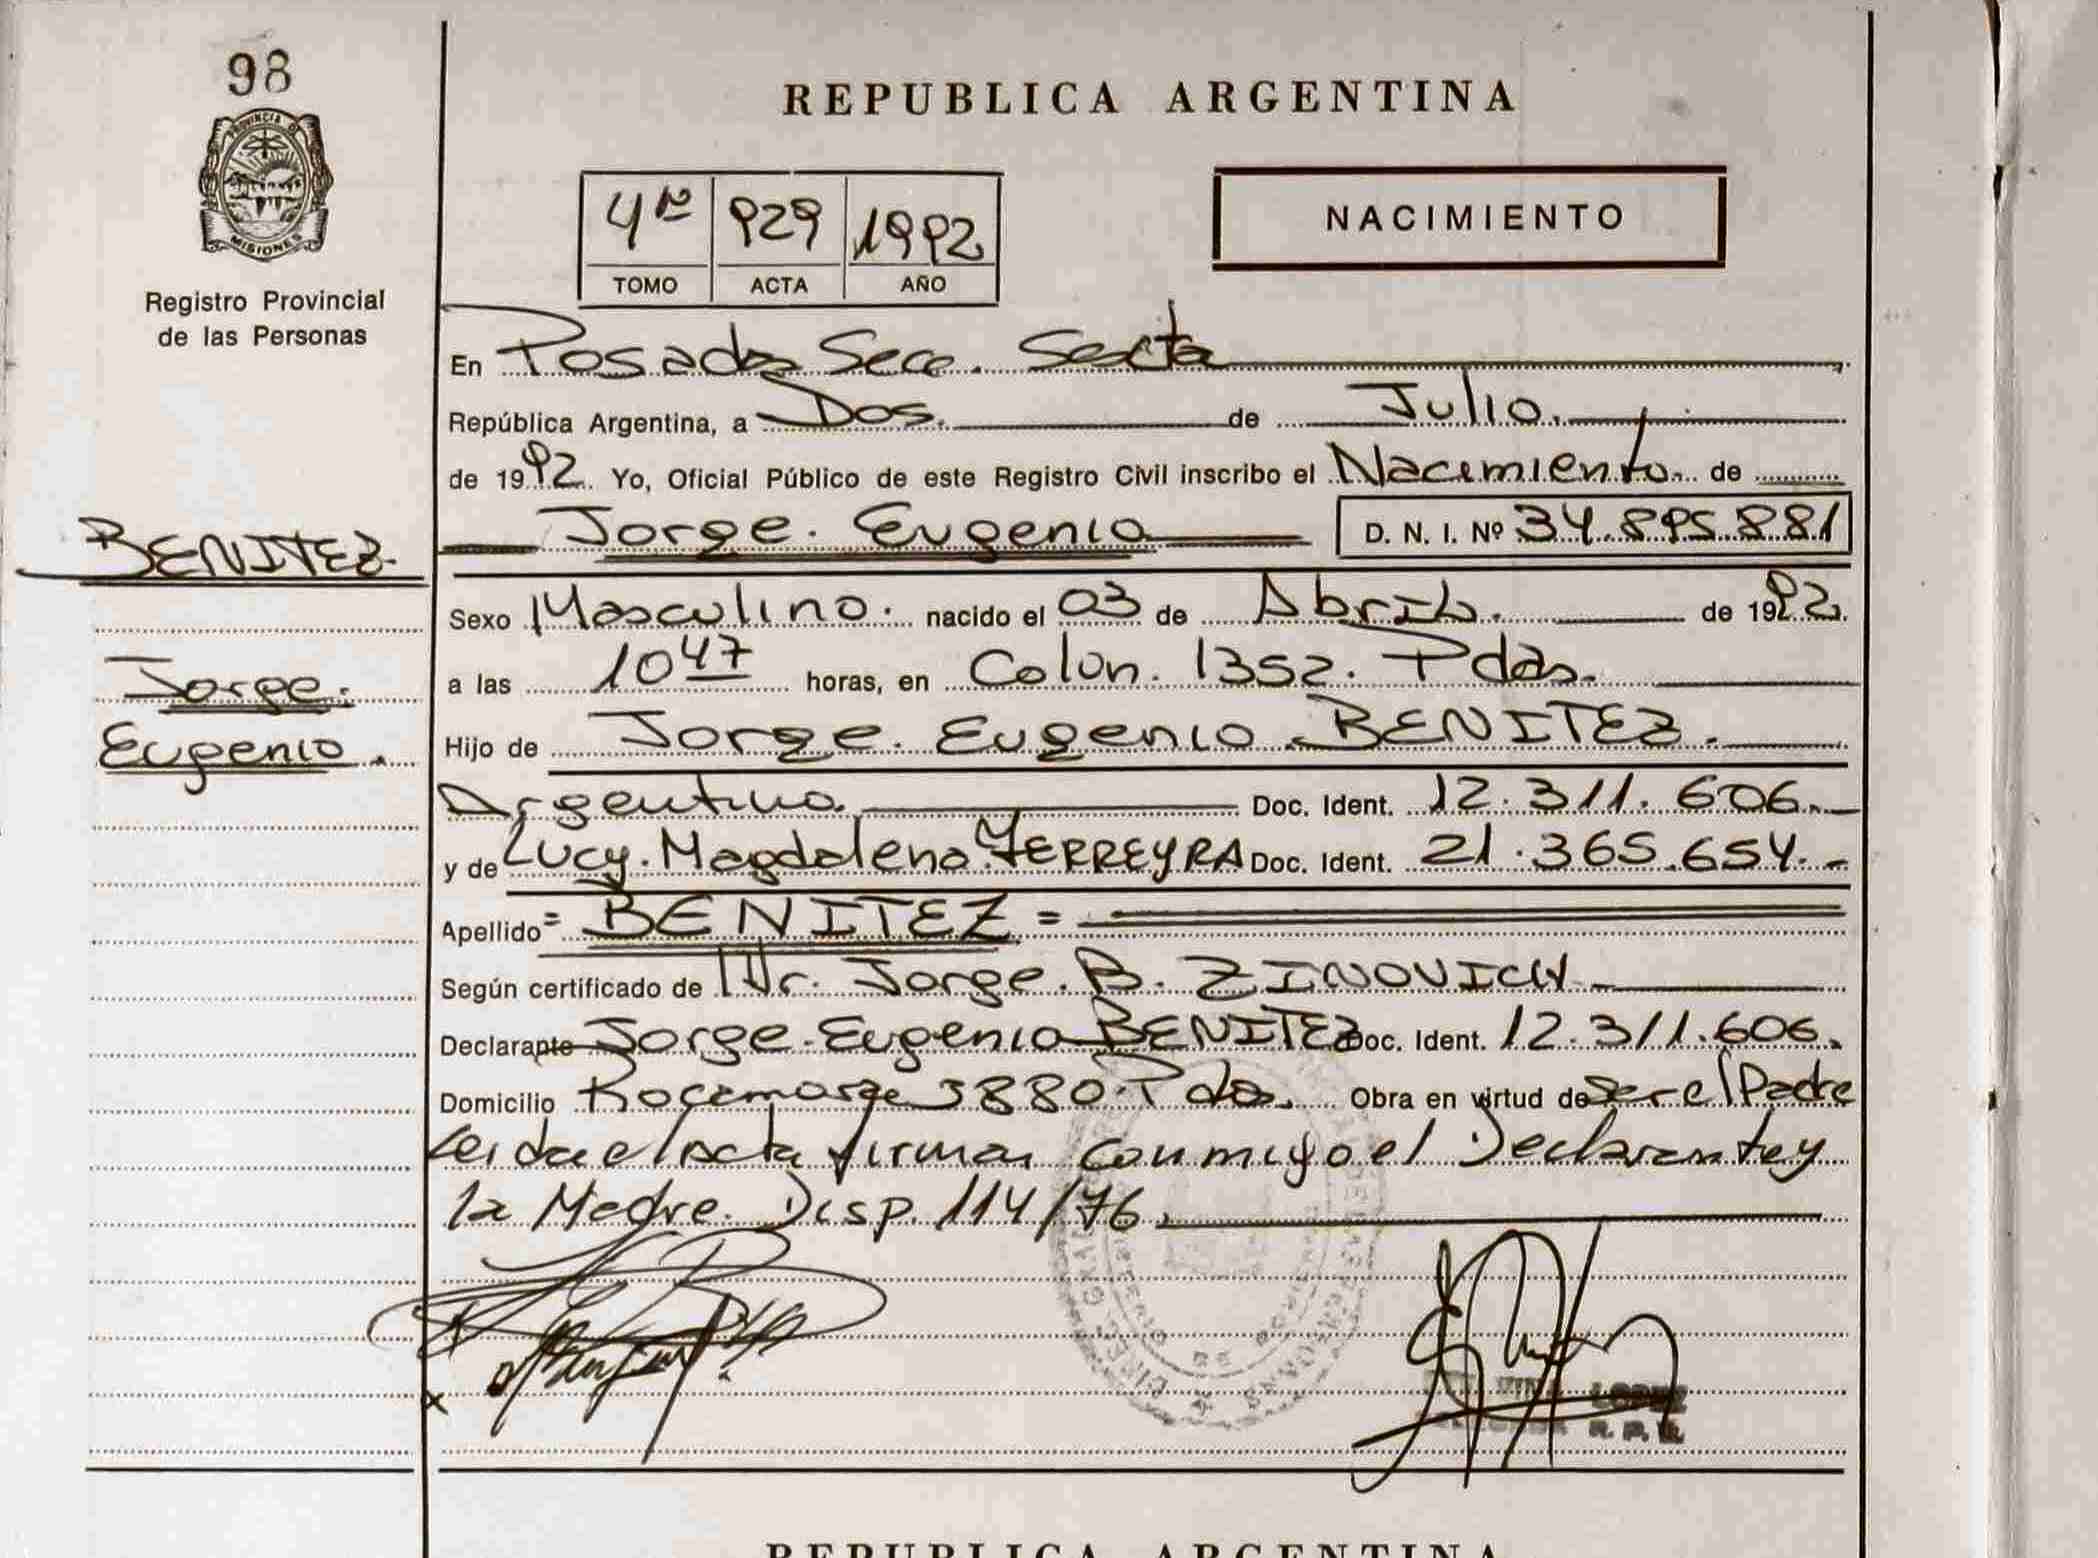 98
PROVINCIA DE
MISIONES
Registro Provincial
de las Personas
REPUBLICA ARGENTINA
4to 929 1992
TOMO ACTA AÑO
NACIMIENTO
En Posadas Secc. Sexta
República Argentina, a Dos. de Julio.
de 1992. Yo, Oficial Público de este Registro Civil inscribo el Nacimiento. de
Jorge. Eugenio D. N. I. Nº 34.895.881
BENITEZ.
Jorge.
Eugenio.
Sexo Masculino. nacido el 03 de Abril. de 1992.
a las 10 47 horas, en Colon. 1352. Pdas.
Hijo de Jorge. Eugenio BENITEZ.
Argentino. Doc. Ident. 12.311.606.
y de Lucy. Magdalena. FERREYRA Doc. Ident. 21.365.654.
Apellido = BENITEZ =
Según certificado de Dr. Jorge. B. ZINOVICH
Declarante Jorge. Eugenio BENITEZ Doc. Ident. 12.311.606.
Domicilio 3880. Pdas. Obra en virtud de Ser el Padre
Leida el Acta firman conmigo el Declarante y
la Madre. Disp. 114/76.
LOPEZ
R. P.
REPUBLICA ARGENTINA